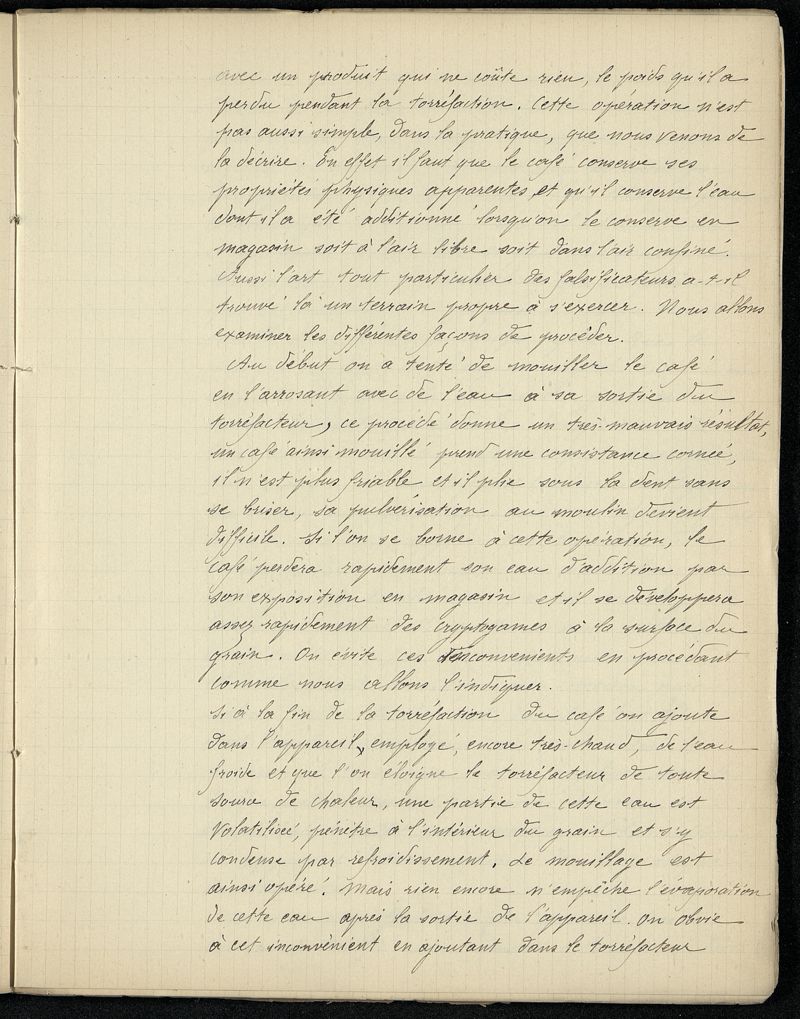 avec un produit qui ne coûte rien, le poids qu'il a
perdu pendant la torréfaction. Cette opération n'est
pas aussi simple, dans la pratique, que nous venons de
la décrire. En effet il faut que le café conserve ses
propriétés physiques apparentes, et qu'il conserve l'eau
dont il a été additionné lorsqu'on le conserve en
magasin soit à l'air libre soit dans l'air confiné.
Aussi l'art tout particulier des falsificateurs a-t-il
trouvé là un terrain propre à s'exercer. Nous allons
examiner les différentes façons de procéder.
Au début on a tenté de mouiller le café
en l'arrosant avec de l'eau à sa sortie du
torréfacteur, ce procédé donne un très mauvais résultat,
un café ainsi mouillé prend une consistance cornée,
il n'est plus friable et il plie sous la dent sans
se briser, sa pulvérisation au moulin devient
difficile. Si l'on se borne à cette opération, le
café perdera rapidement son eau d'addition par
son exposition en magasin et il se développera
assez rapidement des cryptogames à la surface du
grain. On évite ces inconvenients en procédant
comme nous allons l'indiquer.
Si à la fin de la torréfaction du café on ajoute
dans l'appareil employé, encore très-chaud, de l'eau
froide et que l'on éloigne le torréfacteur de toute
source de chaleur, une partie de cette eau est
volatilisée, pénètre à l'intérieur du grain et s'y
condense par refroidissement. Le mouillage est
ainsi opéré. Mais rien encore n'empêche l'évaporation
de cette eau après la sortie de l'appareil. On obvie
à cet inconvénient en ajoutant dans le torréfacteur